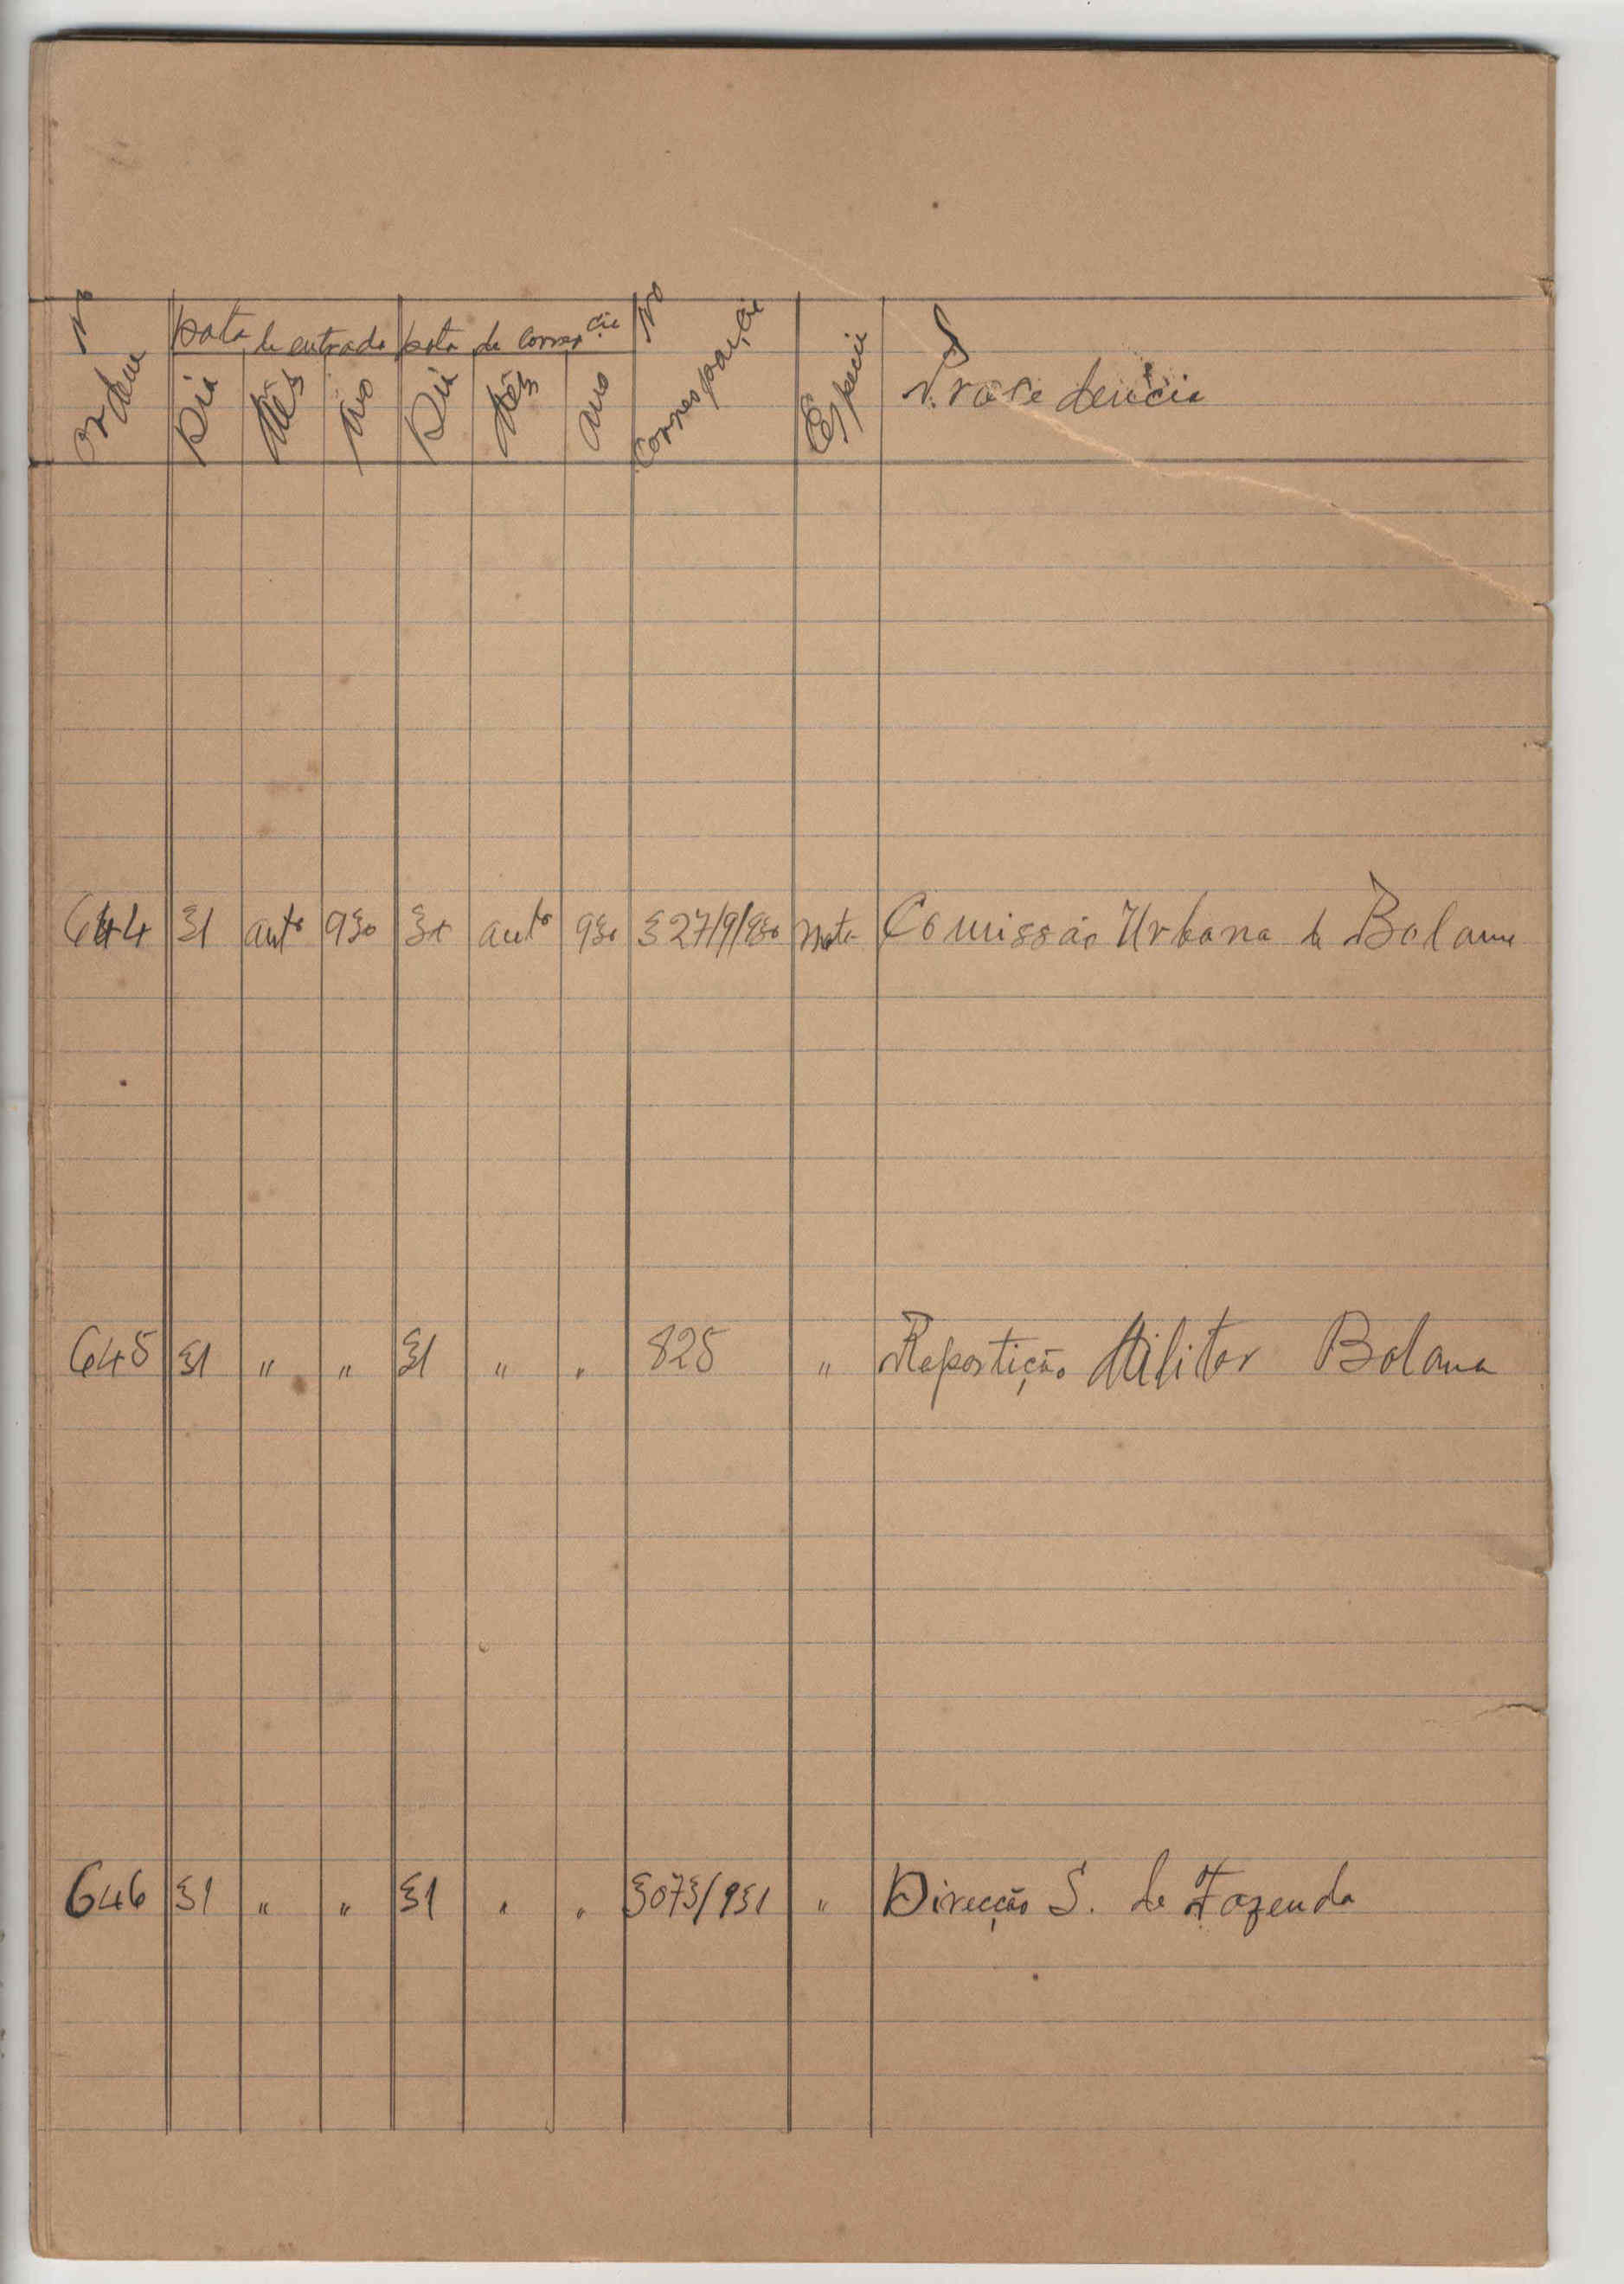 Nº Ordem Data de entrada Data de corresp.cia Nº Correspondência Espécie Procedencia
Dia Mês Ano Dia Mês Ano
644 31 outº 930 31 outº 930 327/9/930 Nota Comissão Urbana de Bolama
645 31 " " 31 " " 825 " Repartição Militar Bolama
646 31 " " 31 " " 3073/931 " Direcção S. de Fazenda